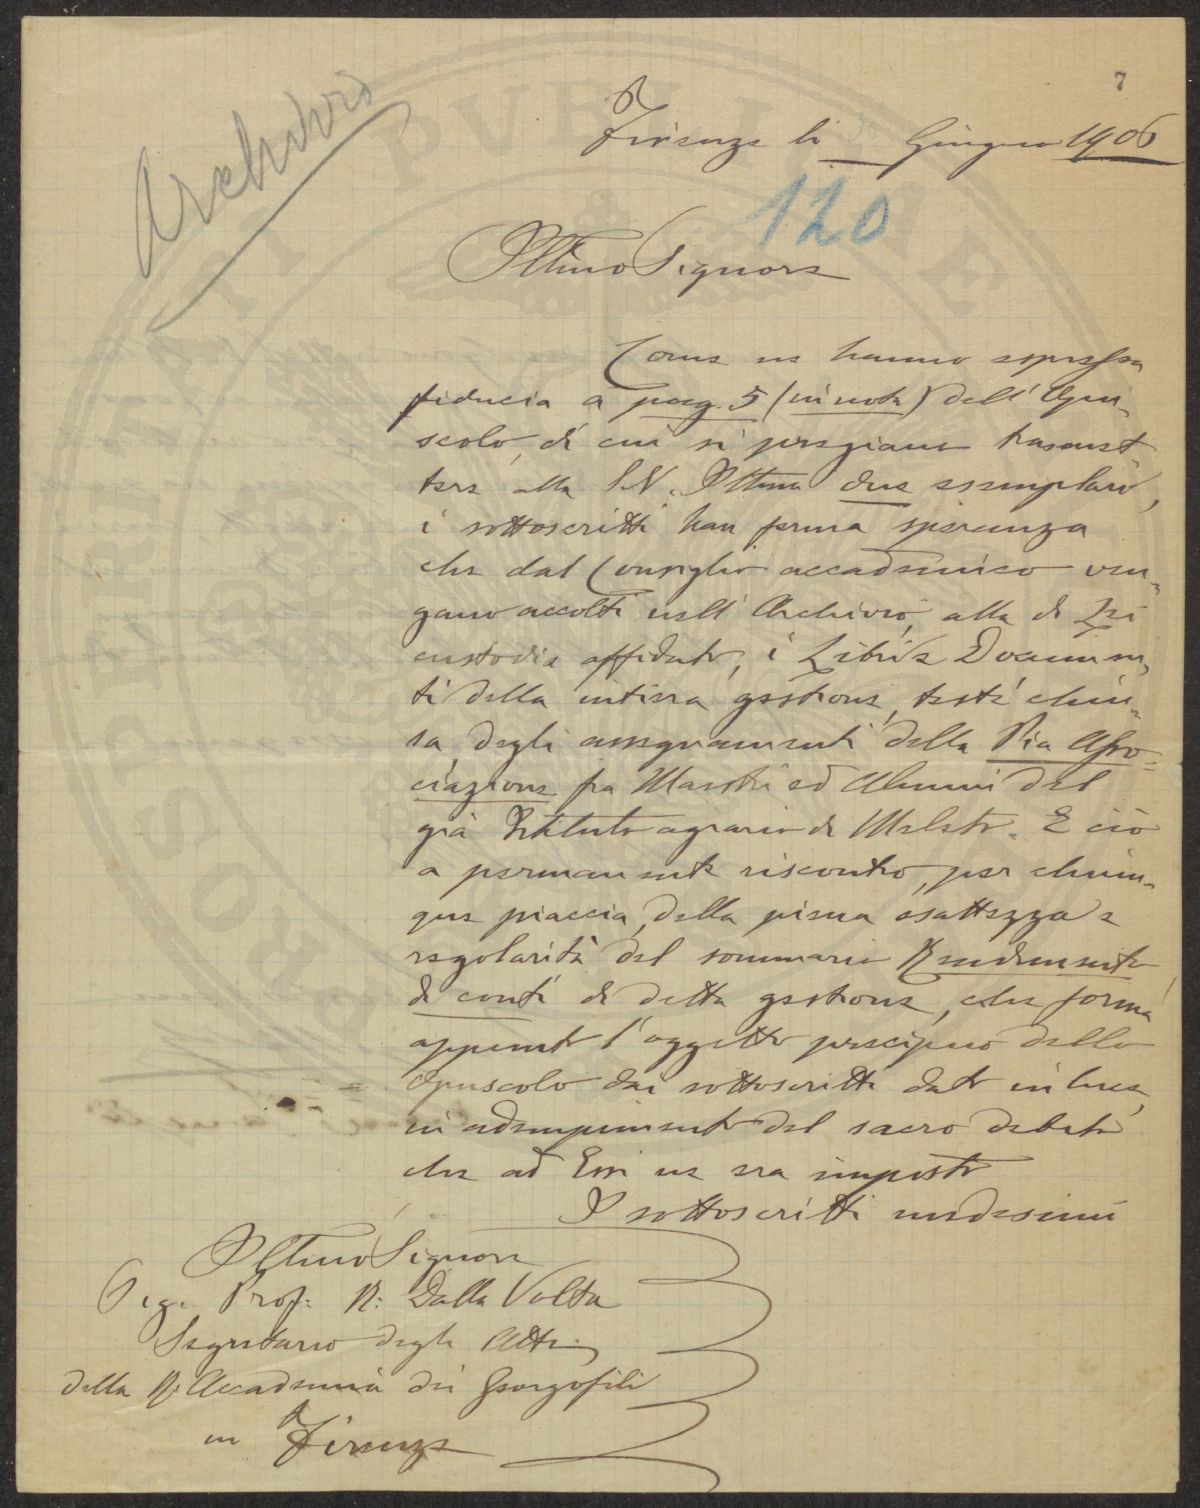 7
Archivio
Firenze li Giugno 1906
120
Illmo Signore
Come ne hanno espressa
fiducia a pag. 5 (in nota) dell' Opu-
scolo, di cui si pregiano trasmet
tere alla S.V. Illma due esemplari,
i sottoscritti han ferma speranza
che dal Consiglio accademico ven-
gano accolti nell' Archivio, alla di Lei
custodia affidato, i Libri e Documen-
ti della intiera gestione, testè chiu-
sa, degli assegnamenti della Pia Asso-
ciazione fra Maestri ed Alunni del
già Istituto agrario di Meleto. E ciò
a permanente riscontro, per chiun-
que piaccia, della piena esattezza e
regolarità del sommario Rendimento
di conti di detta gestione, che forma
appunto l'oggetto precipuo dello
Opuscolo dai sottoscritti dato in luce,
in adempimento del sacro debito
che ad Essi ne era imposto
I sottoscritti medesimi
Illmo Signore
Sig. Prof: R: Dalla Volta
Segretario degli Atti
della R. Accademia dei Georgofili
in Firenze